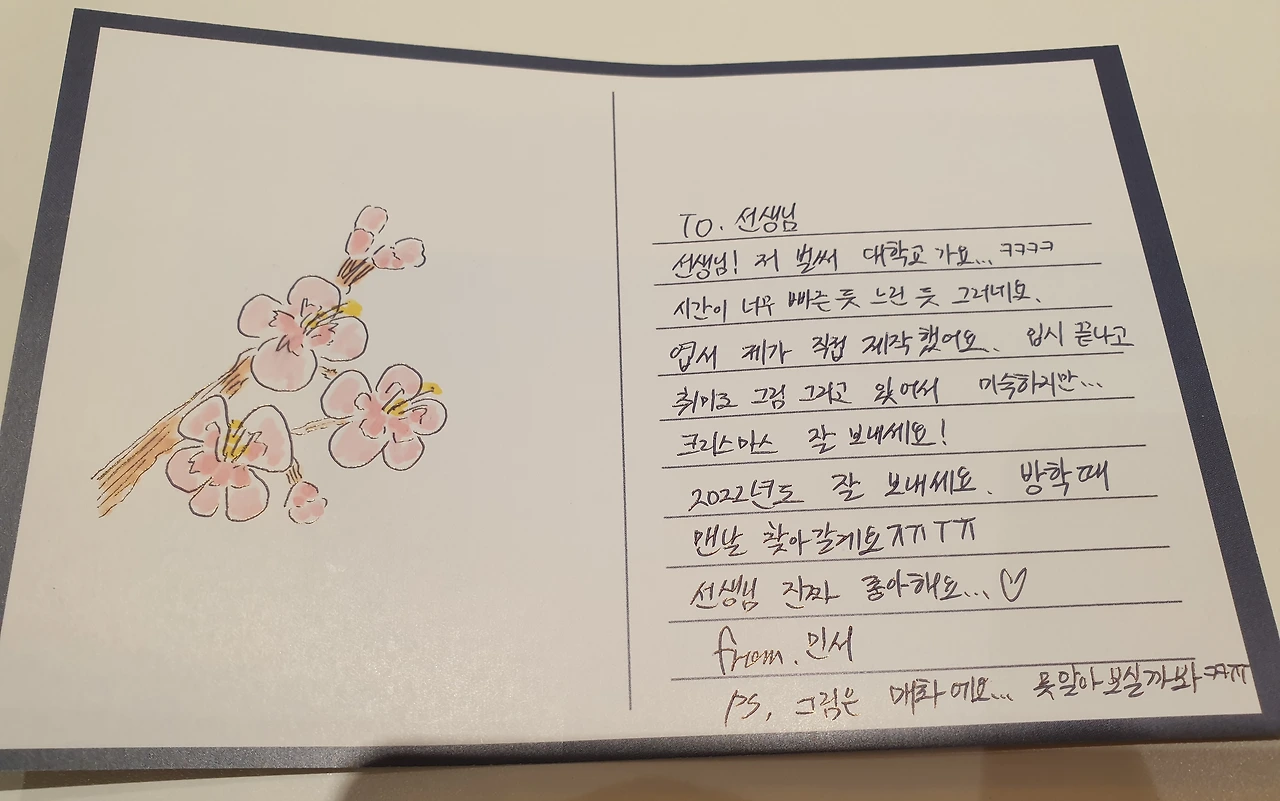 To. 선생님
선생님! 저 벌써 대학교 가요... ㅋㅋㅋㅋ
시간이 너무 빠른 듯 느린 듯 그러네요.
엽서 제가 직접 제작했어요. 입시 끝나고
취미로 그림 그리고 있어서 미숙하지만...
크리스마스 잘 보내세요!
2022년도 잘 보내세요. 방학 때
맨날 찾아갈게요 ㅠㅠㅜㅠ
선생님 진짜 좋아해요... ♡
from. 민서
ps. 그림은 매화예요... 못 알아보실까봐 ㅋㅋㅠ